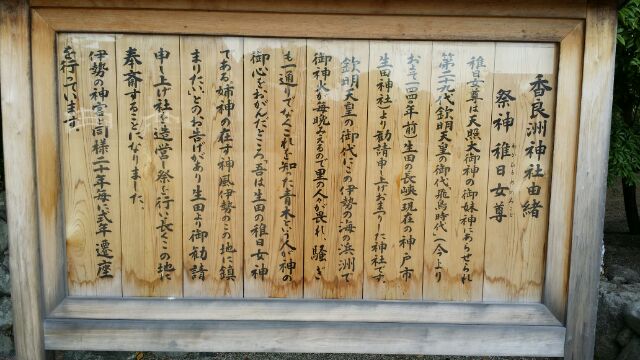 香良洲神社由緒
祭神 稚日女尊
わかひるめのみこと
稚日女尊は天照大御神の御妹神にあらせられ
第二十九代欽明天皇の御代飛鳥時代(今より
およそ一四〇〇年前)生田の長峡(現在の神戸市
生田神社)より勧請申し上げおまつりした神社です。
欽明天皇の御代にこの伊勢の海の浜洲で
御神火が毎晩みえるので里の人々が畏れ、騒ぎ
も一通りでなくこれを知った青木という人が神の
御心をおがんだところ「吾は生田の稚日女神
である姉神の在す神風伊勢のこの地に鎮
まりたい」とのお告げがあり生田より御勧請
申し上げ社を造営し祭を行い長くこの地に
奉斎することになりました。
伊勢の神宮と同様二十年毎に式年遷座
を行っています。